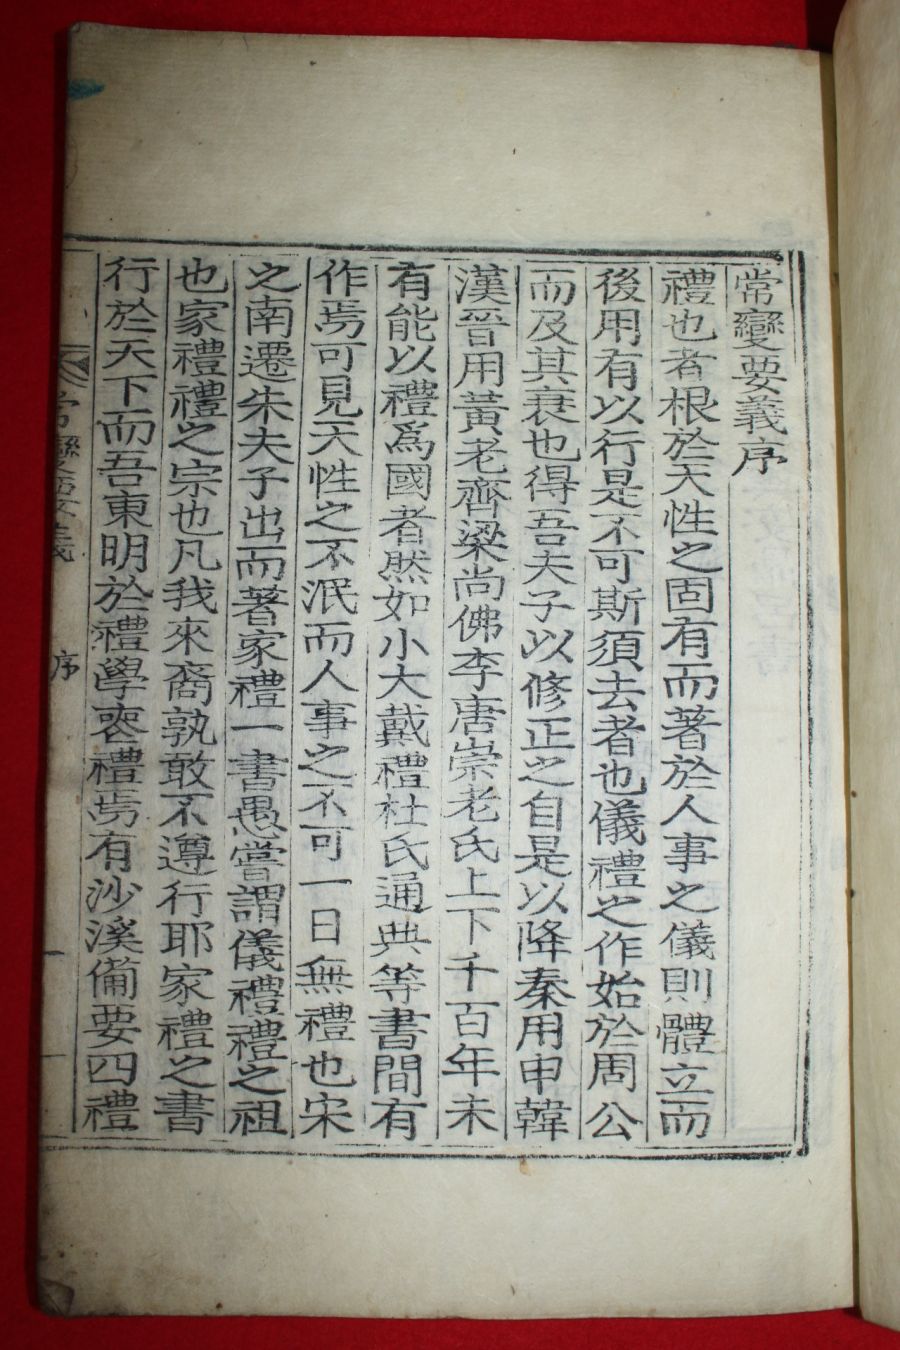 常變要義序
禮也者根於天性之固有而著於人事之儀則體立而
後用有以行是不可斯須去者也儀禮之作始於周公
而及其衰也得吾夫子以修正之自是以降秦用申韓
漢晉用黃老齊梁尚佛李唐崇老氏上下千百年未
有能以禮爲國者然如小大戴禮杜氏通典等書間有
作焉可見天性之不泯而人事之不可一日無禮也宋
之南遷朱夫子出而著家禮一書愚嘗謂儀禮禮之祖
也家禮禮之宗也凡我來裔孰敢不遵行耶家禮之書
行於天下而吾東明於禮學喪禮焉有沙溪備要四禮
常變要義 序